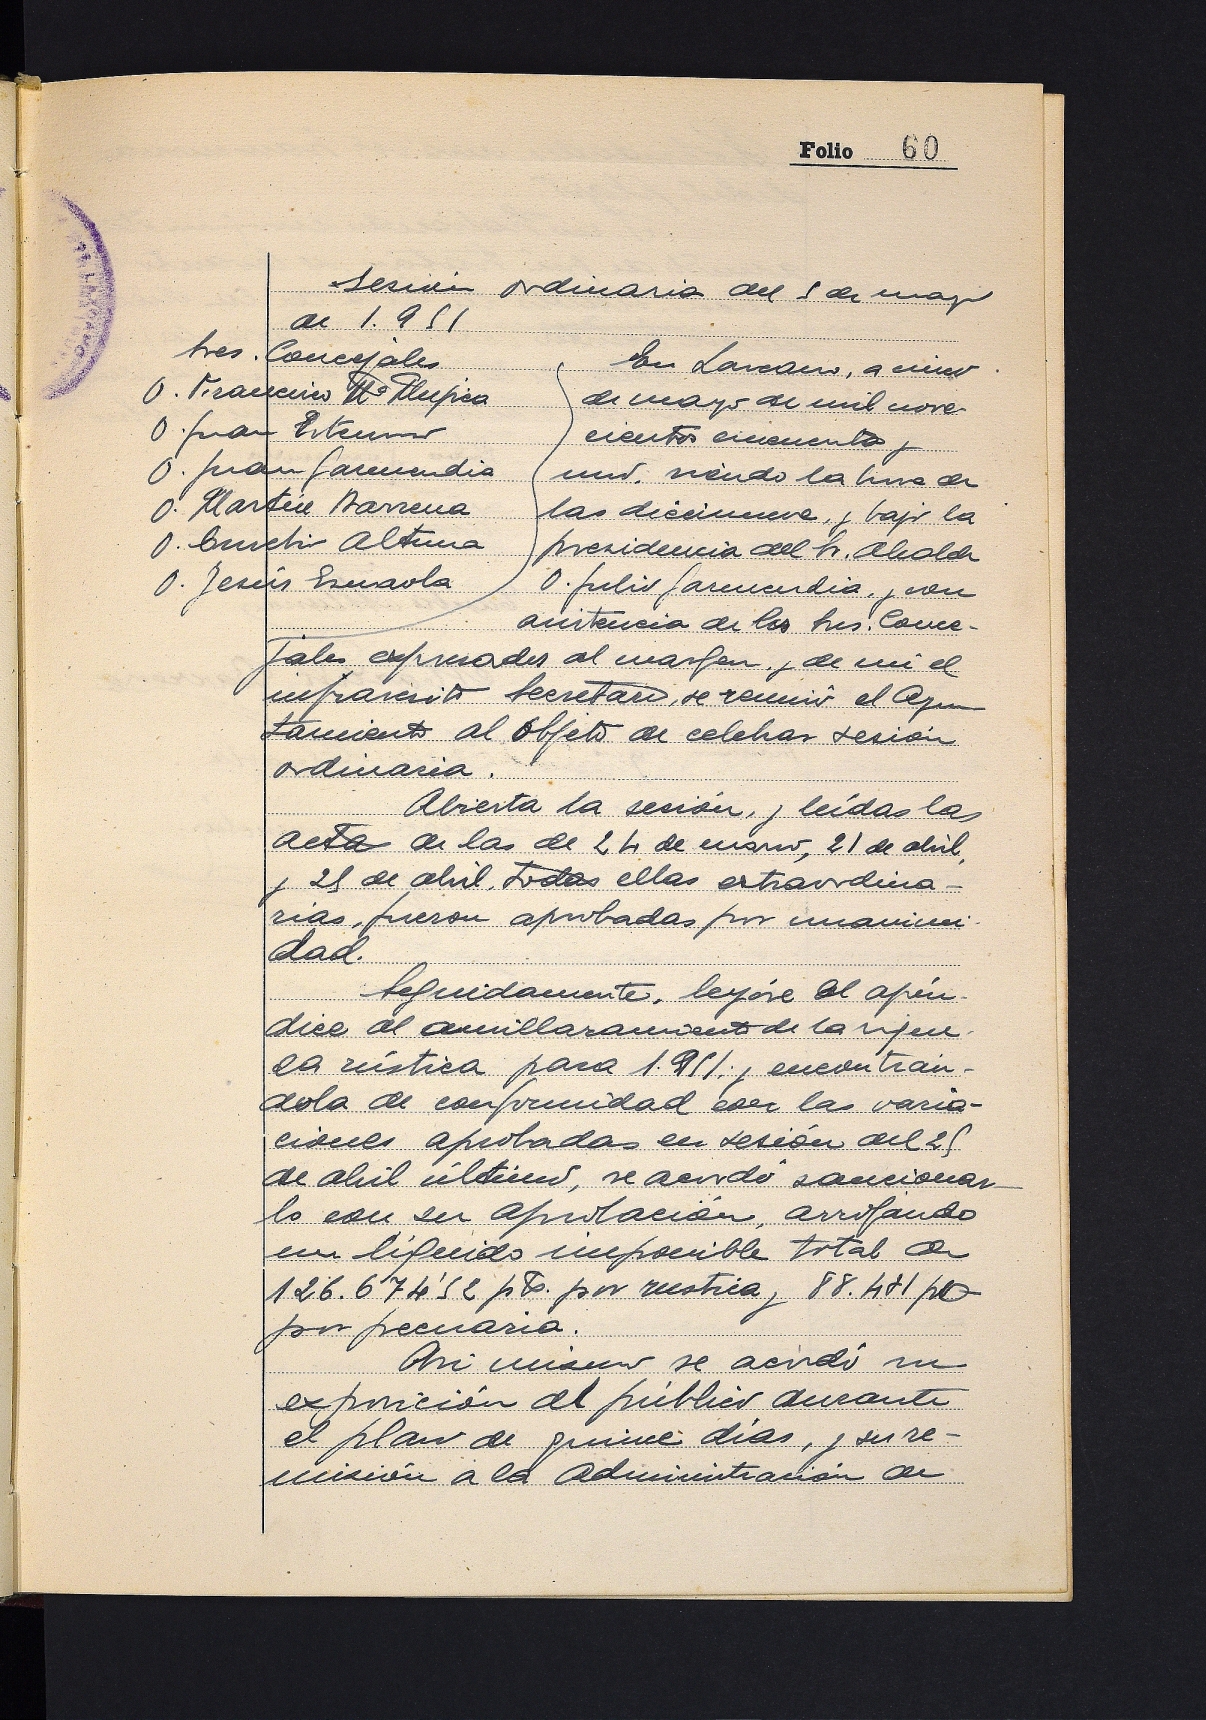 Folio 60
Sesión ordinaria del 5 de mayo
de 1.951
Sres. Concejales
D. Francisco Mª Mugica
D. Juan
D. Juan Garmendia
D. Martín Barrena
D. Eusebio Altuna
D. Jesús Esnaola
En Lazcano, a cinco
de mayo de mil nove-
cientos cincuenta y
uno, siendo la hora de
las diecinueve, y bajo la
presidencia del Sr. Alcalde
D. Julio Garmendia, y con
asistencia de los Sres. Conce-
jales expresados al margen, y de mí el
infrascrito Secretario, se reunió el Ayun-
tamiento al objeto de celebrar sesión
ordinaria.
Abierta la sesión, y leídas las
acta de las de 24 de marzo, 21 de abril,
y 25 de abril, todas ellas extraordina-
rias, fueron aprobadas por unanimi-
dad.
Seguidamente, leyóse el apén-
dice al amillaramiento de la riquе-
za rústica para 1.951; y encontrán-
dola de conformidad con las varia-
ciones aprobadas en sesión del 25
de abril último, se acordó sancionar-
lo con su aprobación, arrojando
un líquido imponible total de
126.674'52 pts. por rustica y 88.481 pts
por pecuaria.
Asi mismo se acordó su
exposición al público durante
el plazo de quince días, y su re-
misión a la Administración de